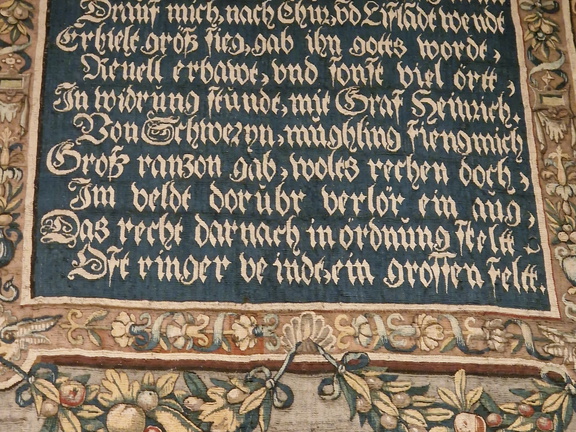 Drauf mich nach Chur, vnd Lifladt wendt
Erhielt größ sieg, gab ihn gotts wordt,
Reuell erbawt, vnd sonst viel örtt,
In widrung stundt, mit Graf Heinrich,
Von Schwezyn, müghling fiengmich
Groß ranzon gab, wolts rechen doch,
Im veldt dorubr verlör ein aug,
Das recht darnach in ördnung steltt
Oft ringer veindt, ein grossen feltt.